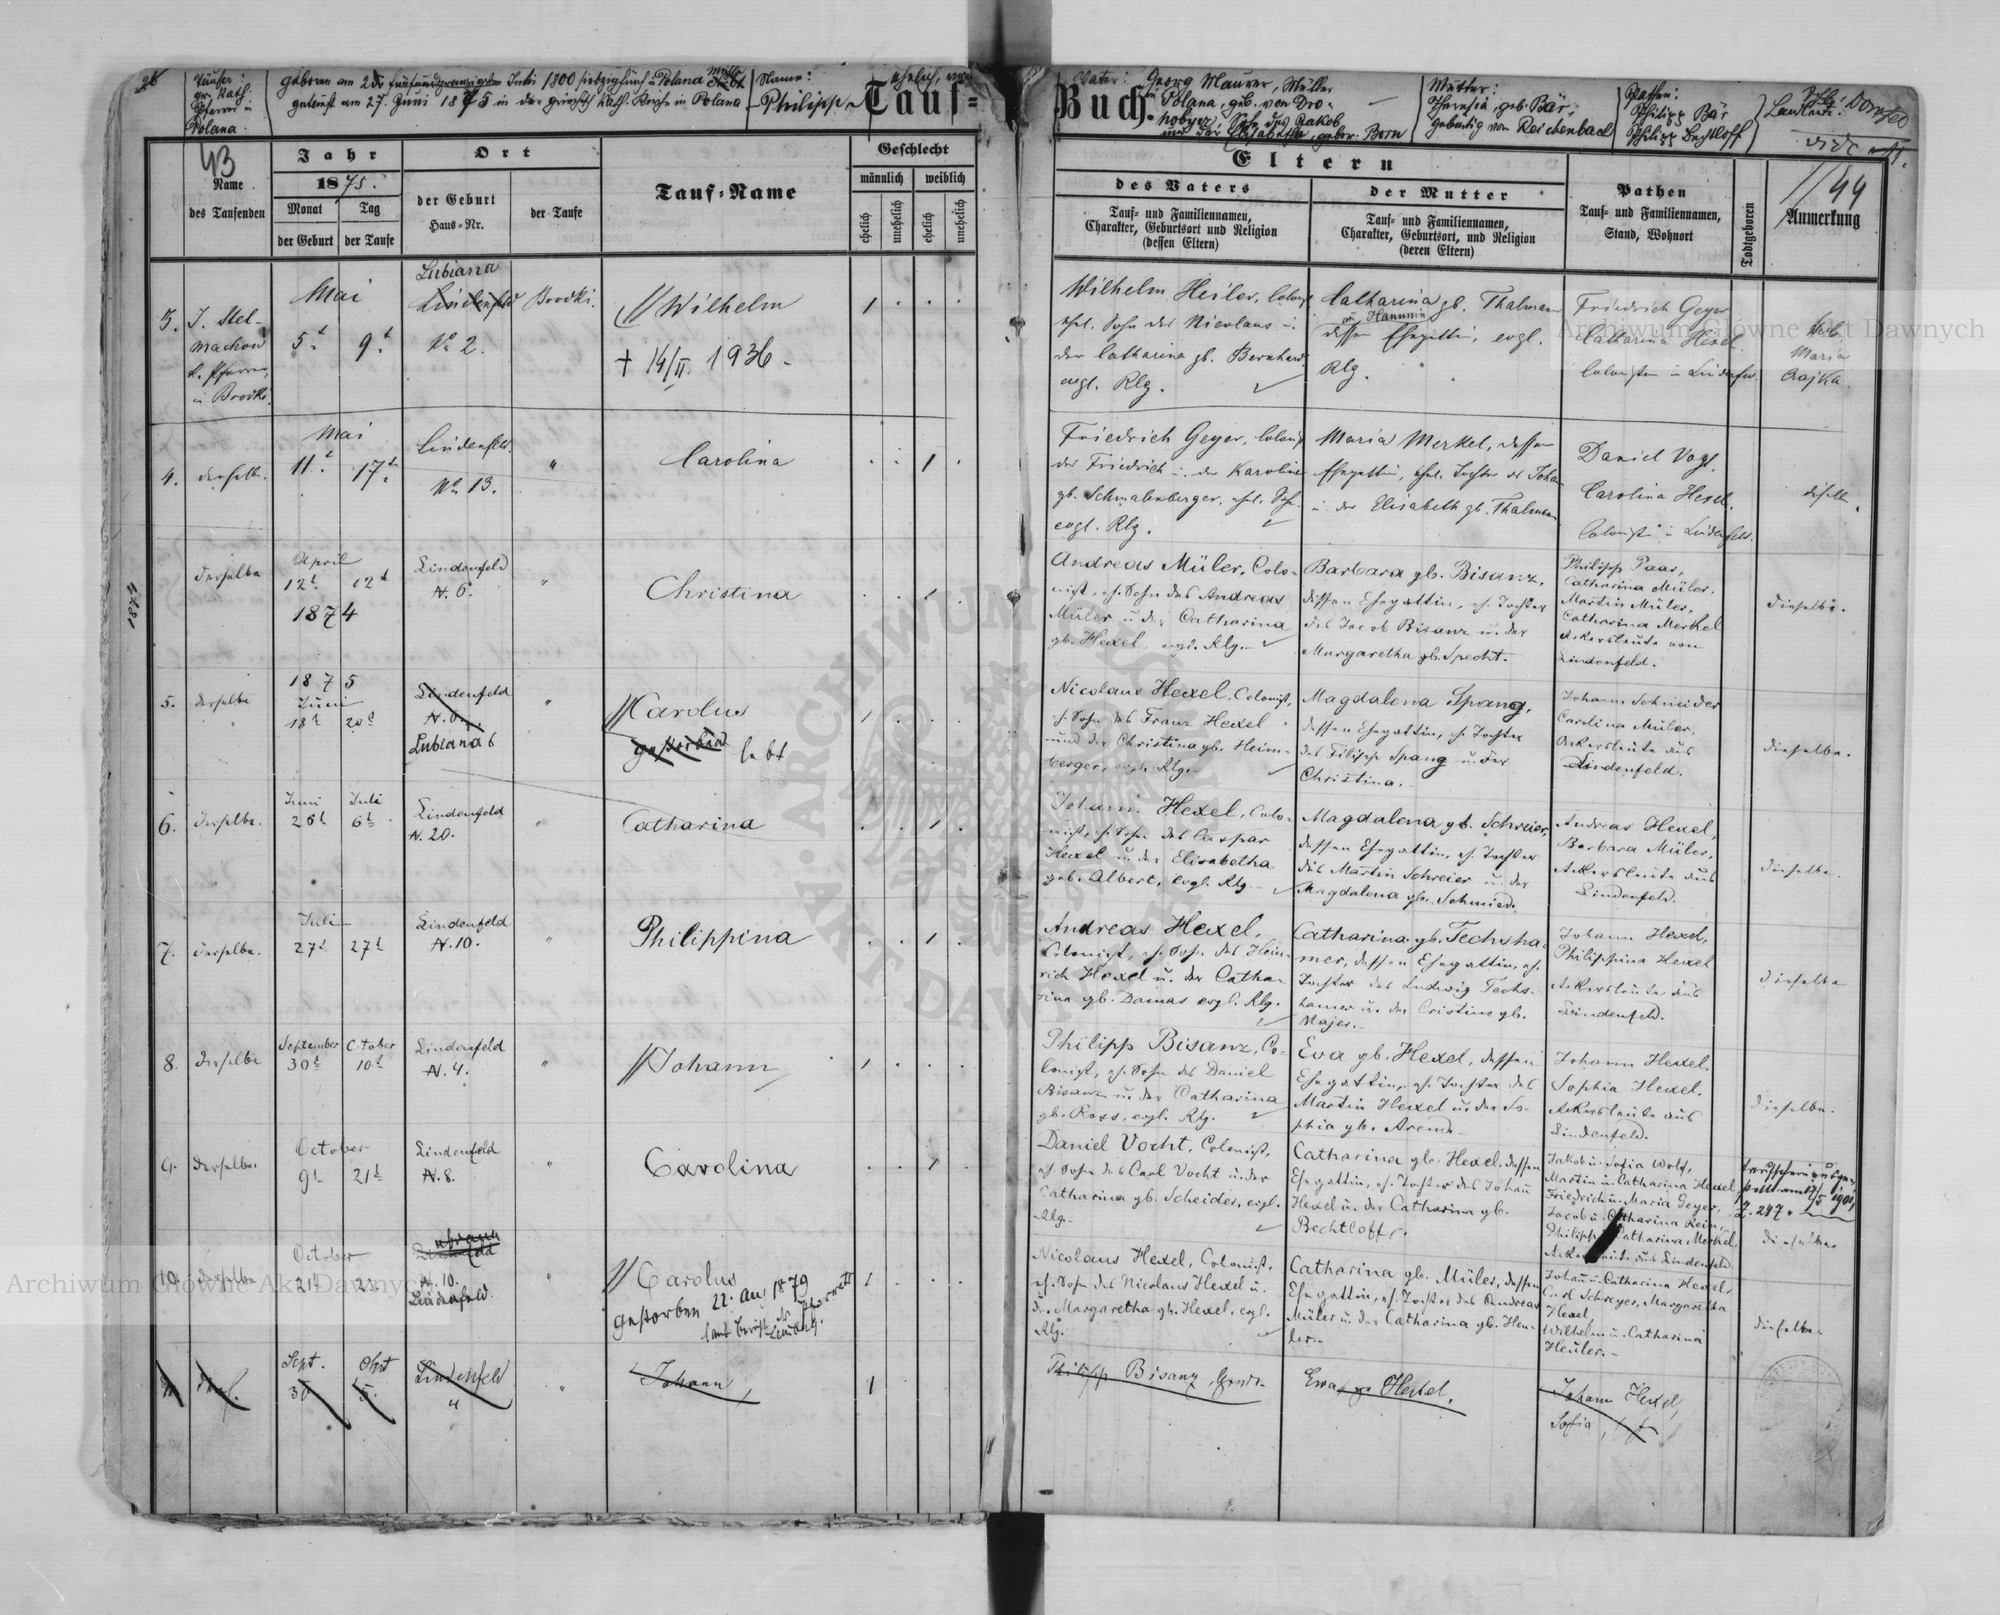 26
Täufer:
gr. Kath.
Pfarrer in
Polana
geboren am 25. fünfundzwanzigsten Juni 1800 siebzigfünf in Polana
getauft am 27. Juni 1875 in der griechisch kath. Kirche in Polana
Name:
Philipp
ehelich,
Tauf-
Buch.
Vater:
Georg Maurer, Müller
in Polana, geb. von Dro-
hobycz, Sohn des Jakob
und der Elisabetha, gebor. Born
Mutter:
Theresia geb. Bär,
gebürtig von Reichenbach
Pathen:
Philipp Bär
Philipp Bechtloff
Landleute.
Dornfeld
vide
43
44
Name
des Taufenden
Jahr
1875.
Monat
Tag
der Geburt
der Taufe
Ort
der Geburt
Haus-Nr.
der Taufe
Tauf-Name
Geschlecht
männlich
weiblich
ehelich
unehelich
ehelich
unehelich
Eltern
des Vaters
Tauf- und Familiennamen,
Charakter, Geburtsort und Religion
(dessen Eltern)
der Mutter
Tauf- und Familiennamen,
Charakter, Geburtsort, und Religion
(deren Eltern)
Pathen
Tauf- und Familiennamen,
Stand, Wohnort
Todtgeboren
Anmerkung
3. J. Stel-
machow
k. Pfarrer
in Brodki.
Mai
5t 9t
Lubiana
Lindenfeld
No 2.
Brodki.
Wilhelm
+ 14/II. 1936.
Wilhelm Heiler, Colonist
ehel. Sohn des Nicolaus u.
der Catharina gb. Bernhard
evgl. Rlg.
Catharina gb. Thalmann
dessen Ehegattin, evgl.
Rlg.
Friedrich Geyer
Catharina Hexel
Colonisten in Lindenfeld.
Heb.
Maria
Czajka.
4. derselbe.
Mai
11t 17t
Lindenfeld.
No 13.
"
Carolina
Friedrich Geyer, Colonist
des Friedrich u. der Karoline
gb. Schmalenberger, ehel. Sohn.
evgl. Rlg.
Maria Merkel, dessen
Ehegattin, ehel. Tochter des Johann
u. der Elisabeth gb. Thalmann
Daniel Vogt.
Carolina Hexel.
Colonisten in Lindenfeld.
dieselbe
1874
derselbe
April
12t 12t
1874
Lindenfeld
N. 6.
"
Christina
Andreas Müler, Colo-
nist, eh. Sohn des Andreas
Müler u. der Catharina
gb. Hexel, evgl. Rlg.
Barbara gb. Bisanz,
dessen Ehegattin, eh. Tochter
des Jacob Bisanz u. der
Margaretha gb. Specht.
Philipp Paar,
Catharina Müler,
Martin Müler,
Catharina Merkel
Ackersleute von
Lindenfeld.
dieselbe.
5. derselbe
1875
Juni
18t 20t
Lindenfeld
Lubiana 6
"
Carolus
gestorben lebt
Nicolaus Hexel, Colonist,
eh. Sohn des Franz Hexel
und der Christina gb. Heim-
berger, evgl. Rlg.
Magdalena Spang,
dessen Ehegattin, eh. Tochter
des Filipp Spang u. der
Christina.
Johann Schneider
Carolina Müler,
Ackersleute aus
Lindenfeld.
dieselbe.
6. derselbe.
Juni Juli
26t 6t
Lindenfeld
N. 20.
"
Catharina
Johann Hexel, Colo-
nist, eh. Sohn des Caspar
Hexel u. der Elisabetha
geb. Albert, evgl. Rlg.
Magdalena gb. Schreier,
dessen Ehegattin, eh. Tochter
des Martin Schreier u. der
Magdalena gb. Schmied.
Andreas Hexel,
Barbara Müler,
Ackersleute aus
Lindenfeld.
dieselbe.
7. derselbe.
Juli
27t 27t
Lindenfeld
N. 10.
"
Philippina
Andreas Hexel,
Colonist, eh. Sohn des Hein-
rich Hexel u. der Catha-
rina gb. Damas evgl. Rlg.
Catharina gb. Techsha-
mer, dessen Ehegattin, eh.
Tochter des Ludwig Techs-
hamer u. der Cristine gb.
Majer.
Johann Hexel,
Philippina Hexel
Ackersleute aus
Lindenfeld.
dieselbe
8. derselbe
September October
30t 10t
Lindenfeld
N. 4.
"
Johann
Philipp Bisanz, Co-
lonist, eh. Sohn des Daniel
Bisanz u. der Catharina
gb. Ross, evgl. Rlg.
Eva gb. Hexel, dessen
Ehegattin, eh. Tochter des
Martin Hexel u. der So-
phia gb. Arend.
Johann Hexel,
Sophia Hexel,
Ackersleute aus
Lindenfeld.
dieselbe.
9. derselbe
October
9t 21t
Lindenfeld
N. 8.
"
Carolina
Daniel Vocht, Colonist,
eh. Sohn des Carl Vocht u. der
Catharina gb. Scheider, evgl.
Rlg.
Catharina gb. Hexel, dessen
Ehegattin, eh. Tochter des Johann
Hexel u. der Catharina gb.
Bechtloff.
Jakob u. Sofia Wolf,
Martin u. Catharina Hexel,
Friedrich u. Maria Geyer,
Jacob u. Catharina Rein,
Philipp Catharina Merkel,
Ackersleute aus Lindenfeld.
Taufschein ausge-
stellt am 17/5 1901,
Z. 247.
dieselbe
10. derselbe
October
21t 23t
Lindenfeld
N. 10.
Lindenfeld.
"
Carolus
gestorben 22. Aug 1879
laut Bericht
Nicolaus Hexel, Colonist,
eh. Sohn des Nicolaus Hexel u.
der Margaretha gb. Hexel, evgl.
Rlg.
Catharina gb. Müler, dessen
Ehegattin, eh. Tochter des Andreas
Müler u. der Catharina gb. Heu-
ler.
Johann u. Catharina Hexel,
Carl Schreyer, Margaretha
Hexel,
Wilhelm u. Catharina
Heuler.
dieselbe
11 ders.
Sept. Okt
30 5.
Lindenfeld
4
"
Johann
Philipp Bisanz, Grundw.
Ewa gb Hexel.
Johann Hexel,
Sofia
Archiwum Główne Akt Dawnych
Archiwum Główne Akt Dawnych